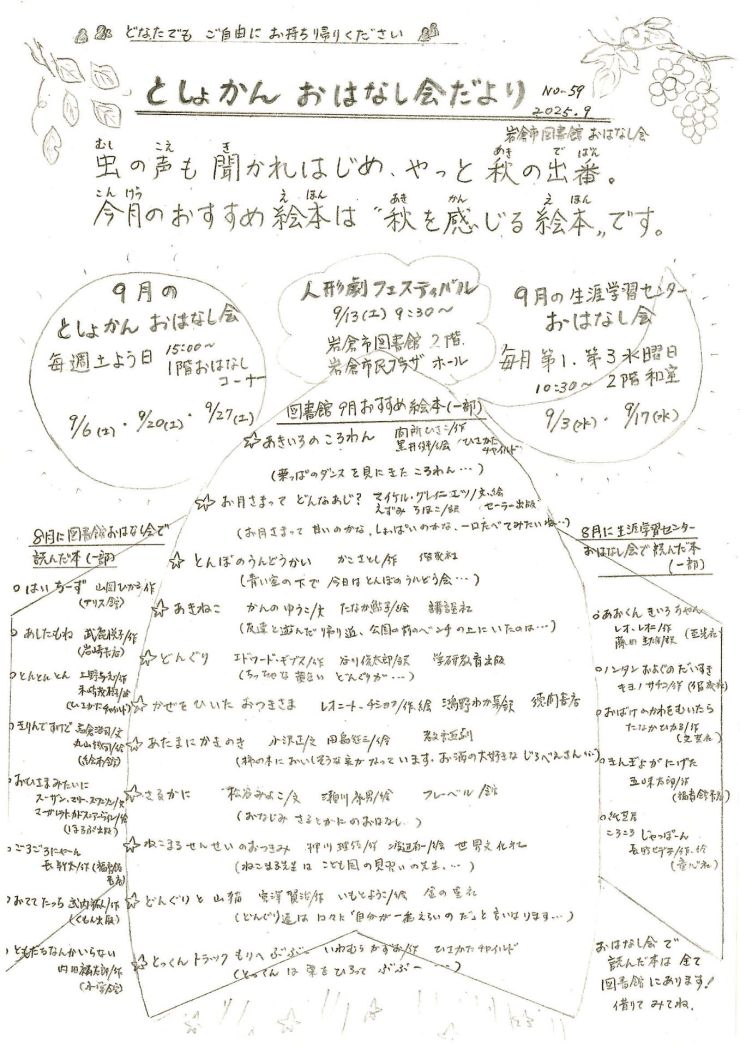 どなたでも ご自由に お持ち帰りください
としょかん おはなし会だより No-59
2025.9
岩倉市図書館 おはなし会
虫の声も 聞かれはじめ、やっと 秋の出番。
むし こえ き あき でばん
今月のおすすめ絵本は〝秋を感じる絵本〟です。
こんげつ えほん あき かん えほん
9月の
としょかん おはなし会
毎週土よう日 15:00〜
1階おはなし
コーナー
9/6(土)・9/20(土)・9/27(土)
人形劇フェスティバル
9/13(土) 9:30〜
岩倉市図書館 2階
岩倉市民プラザ ホール
9月の生涯学習センター
おはなし会
毎月 第1.第3水曜日
10:30〜 2階和室
9/3(水)・9/17(水)
図書館 9月おすすめ絵本(一部)
☆あきいろのころわん 間所ひさこ/作
黒井健/絵 ひさかた
チャイルド
(葉っぱのダンスを見にきた ころわん…)
☆お月さまって どんなあじ? マイケル・グレイニエツ/文、絵
いずみ ちほこ/訳 セーラー出版
(お月さまって 甘いのかな、しょっぱいのかな、一口たべてみたいね…)
☆とんぼのうんどうかい かこさとし/作 偕成社
(青い空の下で 今日はとんぼのうんどう会…)
☆あきねこ かんのゆうこ/文 たなか鮎子/絵 講談社
(友達と遊んだ帰り道、公園の前のベンチの上にいたのは…)
☆どんぐり エドワード・ギブス/作 谷川俊太郎/訳 学研教育出版
(ちっちゃな 茶色い どんぐりが…)
☆かぜをひいた おつきさま レオニート・チシコフ/作、絵 鴻野わか菜/訳 徳間書店
☆あたまにかきのき 水沢正/文 田島征三/絵 教育画劇
(柿の木に おいしそうな実がなっています・お酒の大好きな じろべえさんが…)
☆さるかに 松谷みよこ/文 瀬川康男/絵 フレーベル館
(おなじみ さるとかにのおはなし)
☆ねこまるせんせいのおつきみ 押川理佐/作 渡辺有一/絵 世界文化社
(ねこまる先生は こども園の見習いの先生…)
☆どんぐりと山猫 宮澤賢治/作 いもとようこ/絵 金の星社
(どんぐり達は 口々に〝自分が一番えらいのだ〟と言いはります…)
☆とっくんトラック もりへ ぶぶぶー いわむら かずお/作 ひさかたチャイルド
(とっくんは 栗をひろって ぶぶー …)
8月に図書館おはなし会で
読んだ本(一部)
○はい ちーず 山岡ひかる/作
(アリス館)
○あしたもね 武鹿悦子/作
(岩崎書店)
○とんとんとん 上野与志/作
末崎茂樹/絵
(ひさかたチャイルド)
○きりんですけど
丸山
(絵本館)
○おひさまみたいに
スーザン・マリー・スワンソン/文
マーガレット・チョドス=アーヴィン/絵
(ほるぷ出版)
○ごろごろにゃーん
長新太/作(福音館
書店)
○おててたっち 武内祐人/作
(くもん出版)
○ともだちなんかいらない
内田麟太郎/作
(小学館)
8月に生涯学習センター
おはなし会で読んだ本
(一部)
○あおくん きいろちゃん
レオ・レオニ/作
藤田圭雄/訳(至光社)
○ノンタン およぐのだいすき
キヨノサチコ/作(偕成社)
○おばけのかわをむいたら
たなかひかる/作
(文響社)
○きんぎょがにげた
五味太郎/作
(福音館書店)
○紙芝居
ころころ じゃっぽーん
長野ヒデ子/作、絵
(童心社)
おはなし会で
読んだ本は全て
図書館にあります!
借りてみてね。